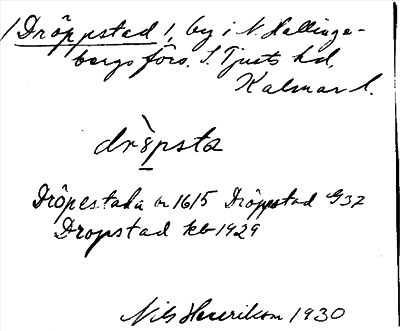 1 Dröppstad 1, by i N. Hallinge-
bergs förs. S. Tjusts hd,
Kalmar l.
drɛ̀psta
Dröpestada 1615 Dröppstad G32
Dropstad kb 1929
Nils Henrikson 1930